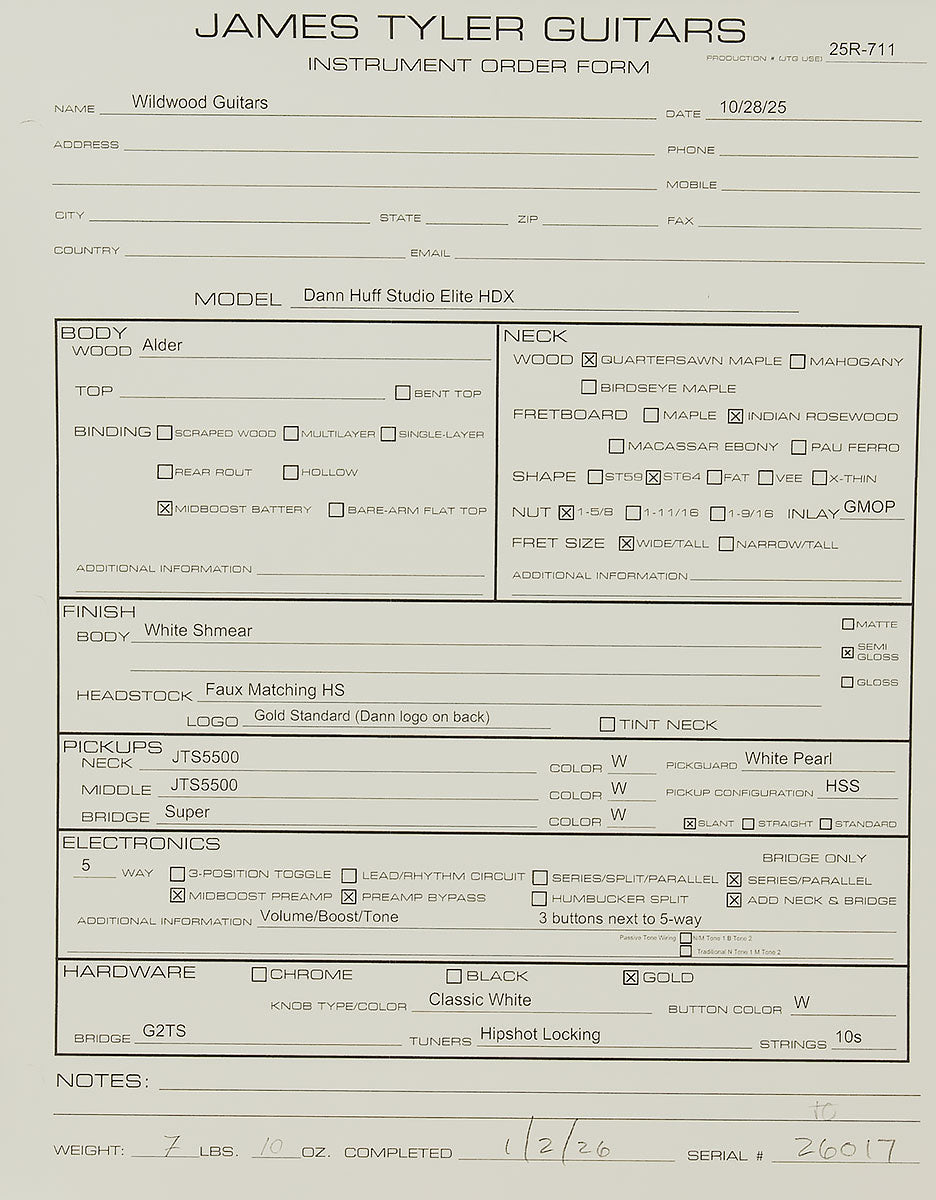 JAMES TYLER GUITARS
INSTRUMENT ORDER FORM
PRODUCTION # (JTG USE) 25R-711
NAME Wildwood Guitars DATE 10/28/25
ADDRESS PHONE
MOBILE
CITY STATE ZIP FAX
COUNTRY EMAIL
MODEL Dann Huff Studio Elite HDX
BODY
WOOD Alder
TOP ☐ BENT TOP
BINDING ☐ SCRAPED WOOD ☐ MULTILAYER ☐ SINGLE-LAYER
☐ REAR ROUT ☐ HOLLOW
☒ MIDBOOST BATTERY ☐ BARE-ARM FLAT TOP
ADDITIONAL INFORMATION
NECK
WOOD ☒ QUARTERSAWN MAPLE ☐ MAHOGANY
☐ BIRDSEYE MAPLE
FRETBOARD ☐ MAPLE ☒ INDIAN ROSEWOOD
☐ MACASSAR EBONY ☐ PAU FERRO
SHAPE ☐ ST59 ☒ ST64 ☐ FAT ☐ VEE ☐ X-THIN
NUT ☒ 1-5/8 ☐ 1-11/16 ☐ 1-9/16 INLAY GMOP
FRET SIZE ☒ WIDE/TALL ☐ NARROW/TALL
ADDITIONAL INFORMATION
FINISH
BODY White Shmear
☐ MATTE
☒ SEMI GLOSS
☐ GLOSS
HEADSTOCK Faux Matching HS
LOGO Gold Standard (Dann logo on back) ☐ TINT NECK
PICKUPS
NECK JTS5500 COLOR W PICKGUARD White Pearl
MIDDLE JTS5500 COLOR W PICKUP CONFIGURATION HSS
BRIDGE Super COLOR W ☒ SLANT ☐ STRAIGHT ☐ STANDARD
ELECTRONICS
BRIDGE ONLY
5 WAY ☐ 3-POSITION TOGGLE ☐ LEAD/RHYTHM CIRCUIT ☐ SERIES/SPLIT/PARALLEL ☒ SERIES/PARALLEL
☒ MIDBOOST PREAMP ☒ PREAMP BYPASS ☐ HUMBUCKER SPLIT ☒ ADD NECK & BRIDGE
ADDITIONAL INFORMATION Volume/Boost/Tone 3 buttons next to 5-way
Passive Tone Wiring ☐ N/M Tone 1 B Tone 2
☐ Traditional N Tone 1 M Tone 2
HARDWARE ☐ CHROME ☐ BLACK ☒ GOLD
KNOB TYPE/COLOR Classic White BUTTON COLOR W
BRIDGE G2TS TUNERS Hipshot Locking STRINGS 10s
NOTES:
WEIGHT: 7 LBS. 10 OZ. COMPLETED 1/2/26 SERIAL # 26017